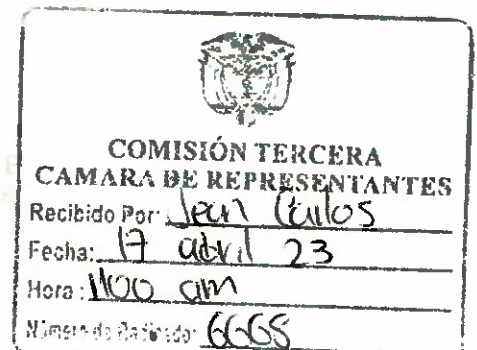 COMISIÓN TERCERA
CAMARA DE REPRESENTANTES
Recibido Por: Jean Carlos
Fecha: 17 abril 23
Hora: 1100 am
Número de Radicado: